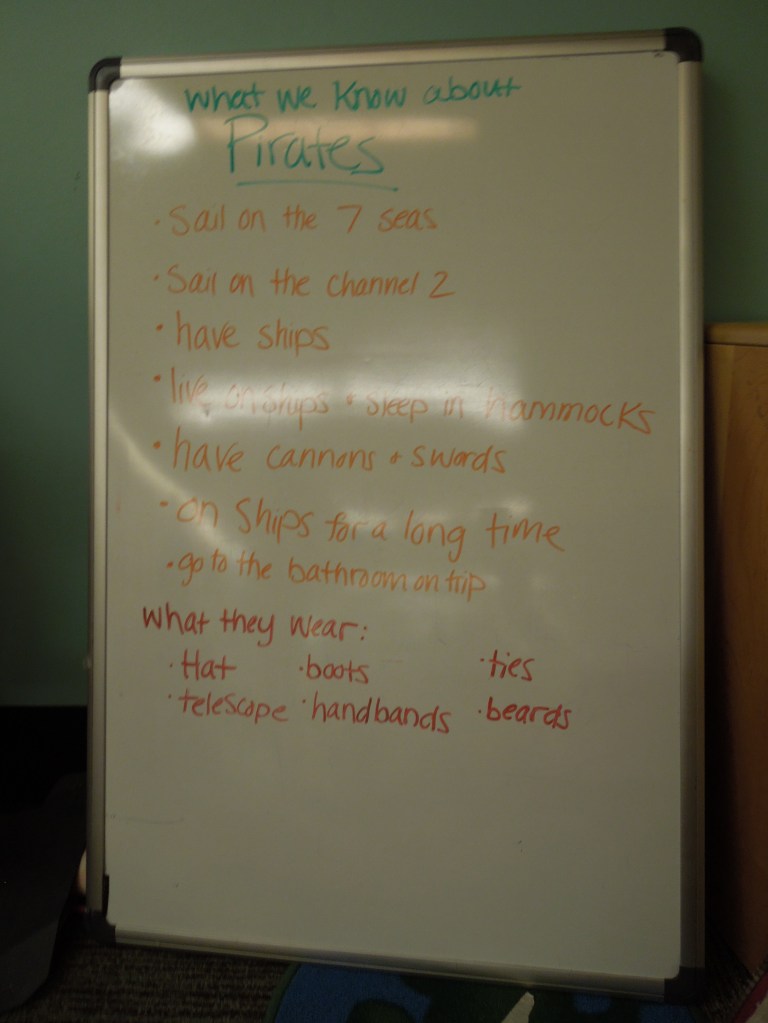 What we know about
Pirates
• Sail on the 7 seas
• Sail on the channel 2
• have ships
• live on ships + sleep in hammocks
• have cannons + swords
• on ships for a long time
• go to the bathroom on trip
What they wear:
• Hat • boots • ties
• telescope • handbands • beards